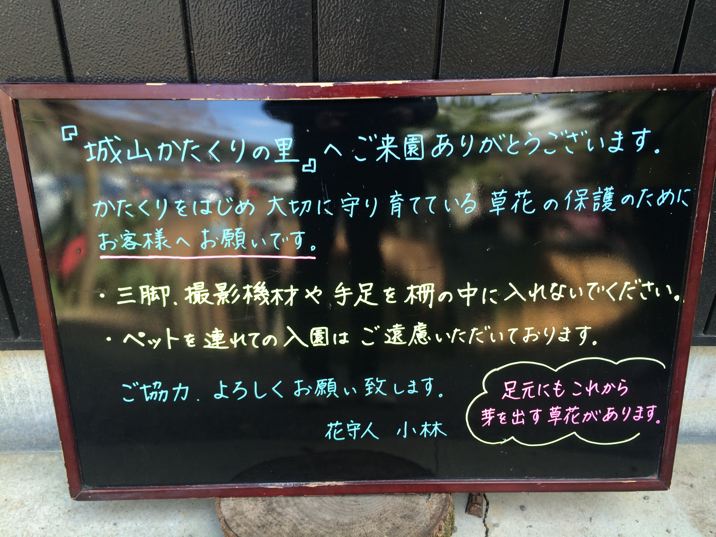 『城山かたくりの里』へご来園ありがとうございます。
かたくりをはじめ大切に守り育てている草花の保護のために
お客様へお願いです。
・三脚、撮影機材や手足を柵の中に入れないでください。
・ペットを連れての入園はご遠慮いただいております。
ご協力、よろしくお願い致します。
花守人 小林
足元にもこれから
芽を出す草花があります。